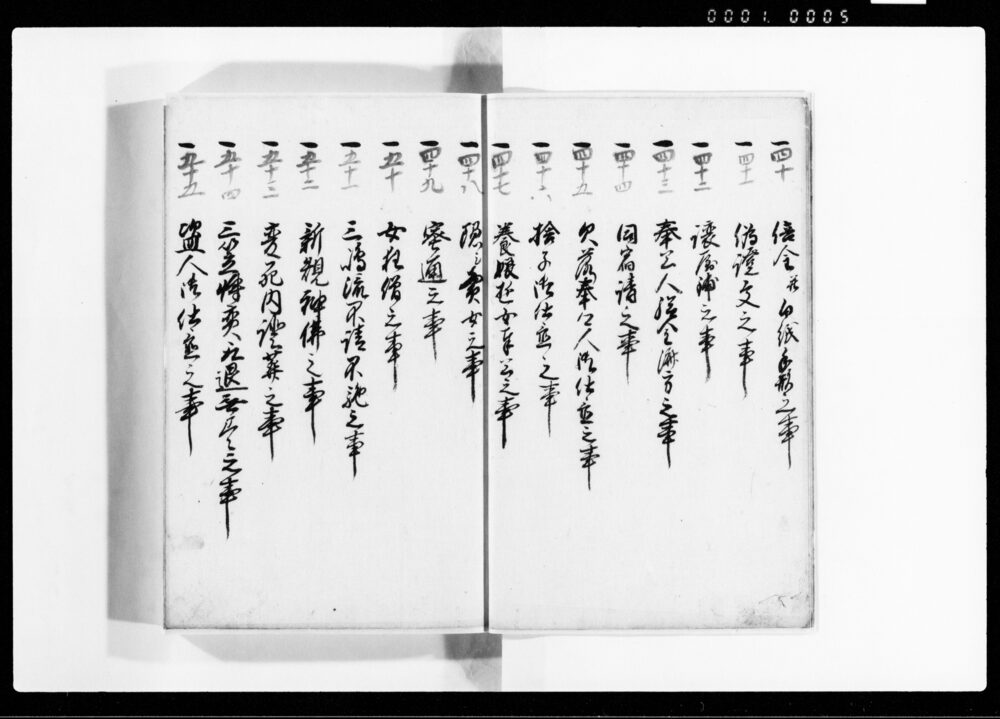 0001. 0005
一四十 倍金并白紙手形之事
一四十一 偽證文之事
一四十二 譲屋鋪之事
一四十三 奉公人給金済方之事
一四十四 同請之事
一四十五 欠落奉公人御仕置之事
一四十六 捨子御仕置之事
一四十七 養娘遊女奉公之事
一四十八 隠シ賣女之事
一四十九 密通之事
一五十 女犯僧之事
一五十一 三鳥流不請不施之事
一五十二 新規神佛之事
一五十三 変死内證葬之事
一五十四 三笠博奕取退無尽之事
一五十五 盗人御仕置之事